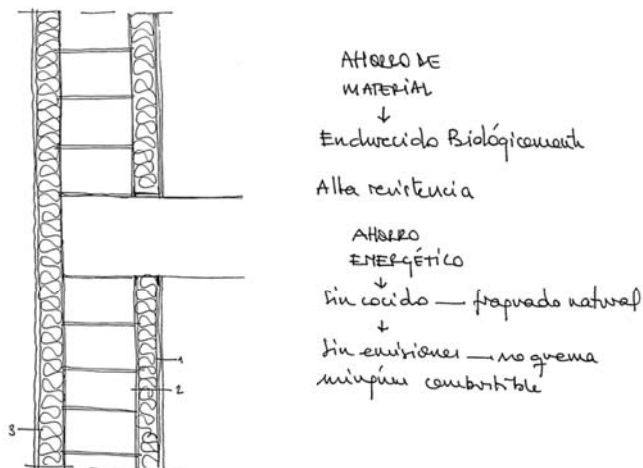 AHORRO DE
MATERIAL
↓
Endurecido Biológicamente
Alta resistencia
AHORRO
ENERGÉTICO
↓
Sin cocido — fraguado natural
↓
Sin emisiones — no quema
ningún combustible
1
2
3